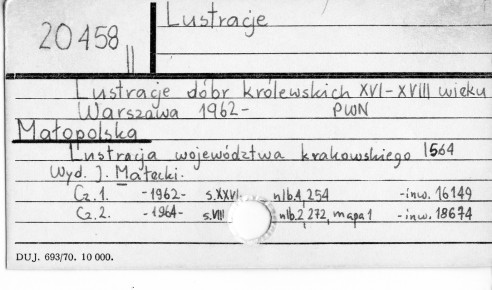 20458 || Lustracje
Lustracje dóbr królewskich XVI-XVIII wieku
Warszawa 1962- PWN
Małopolska
Lustracja województwa krakowskiego 1564
Wyd. J. Małecki.
Cz. 1. -1962- s. XXVI, nlb. 4, 254 -inw. 16149
Cz. 2. -1964- s. VIII nlb. 2, 272, mapa 1 -inw. 18674
DUJ. 693/70. 10 000.